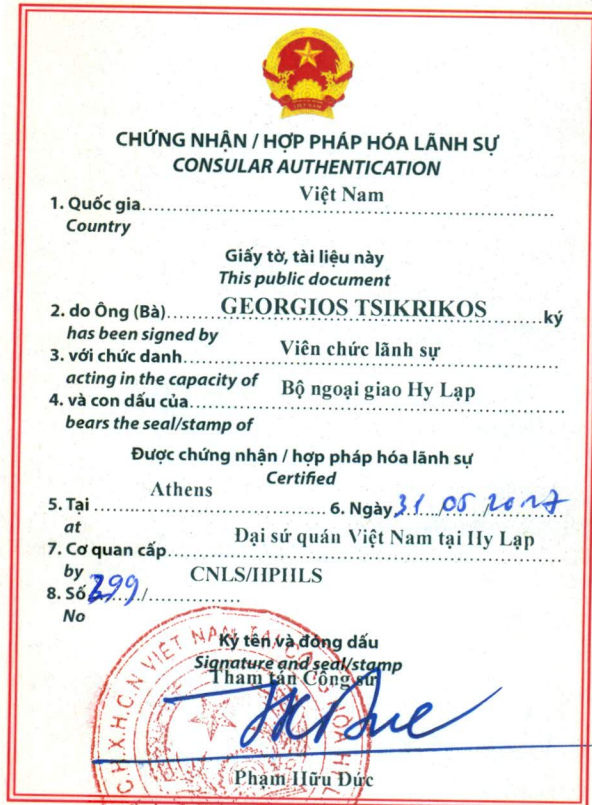 CHỨNG NHẬN / HỢP PHÁP HÓA LÃNH SỰ
CONSULAR AUTHENTICATION
1. Quốc gia Việt Nam
Country
Giấy tờ, tài liệu này
This public document
2. do Ông (Bà) GEORGIOS TSIKRIKOS ký
has been signed by
3. với chức danh Viên chức lãnh sự
acting in the capacity of
4. và con dấu của Bộ ngoại giao Hy Lạp
bears the seal/stamp of
Được chứng nhận / hợp pháp hóa lãnh sự
Certified
5. Tại Athens 6. Ngày 31 05 2017
at
7. Cơ quan cấp Đại sứ quán Việt Nam tại Hy Lạp
by
8. Số 299 / CNLS/HPHLS
No
Ký tên và đóng dấu
Signature and seal/stamp
Tham tán Công sứ
Phạm Hữu Đức
C.H.X.H.C.N VIỆT NAM TẠI CỘNG HÒA